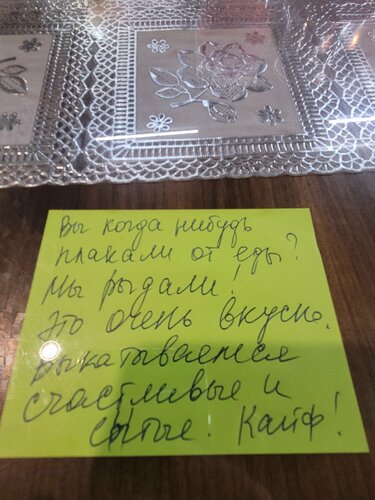 Вы когда нибудь
плакали от еды?
Мы рыдали!
Это очень вкусно.
Выкатываемся
счастливые и
сытые. Кайф!